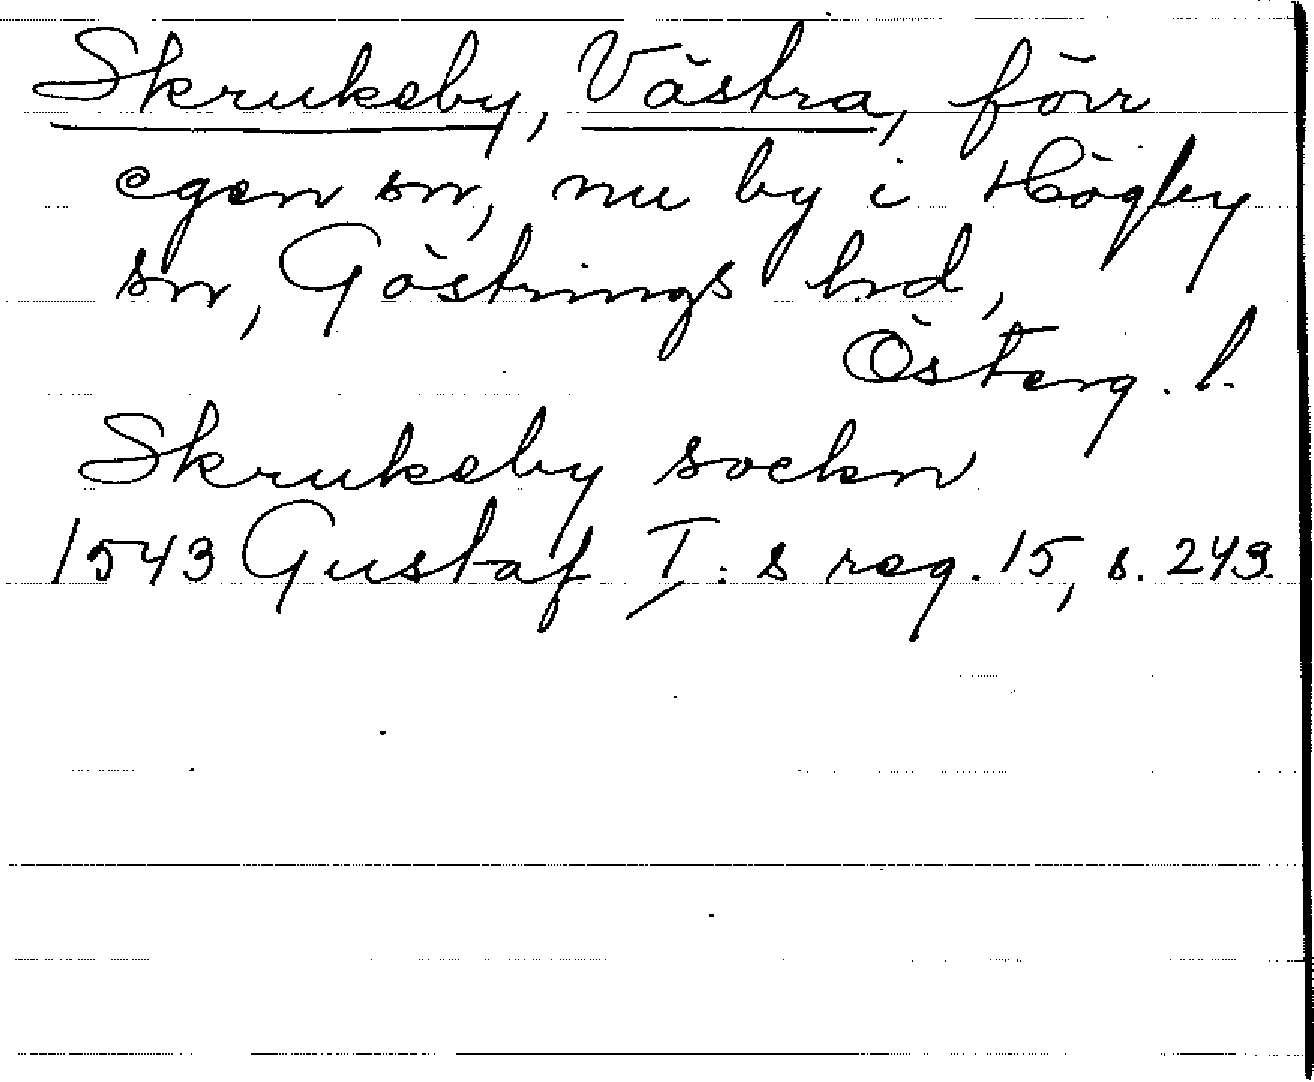 Skrukeby, Västra, förr
egen sn, nu by i Högby
sn, Göstrings hrd,
Österg. l.
Skrukeby sockn
1543 Gustaf I:s reg. 15, s. 243.